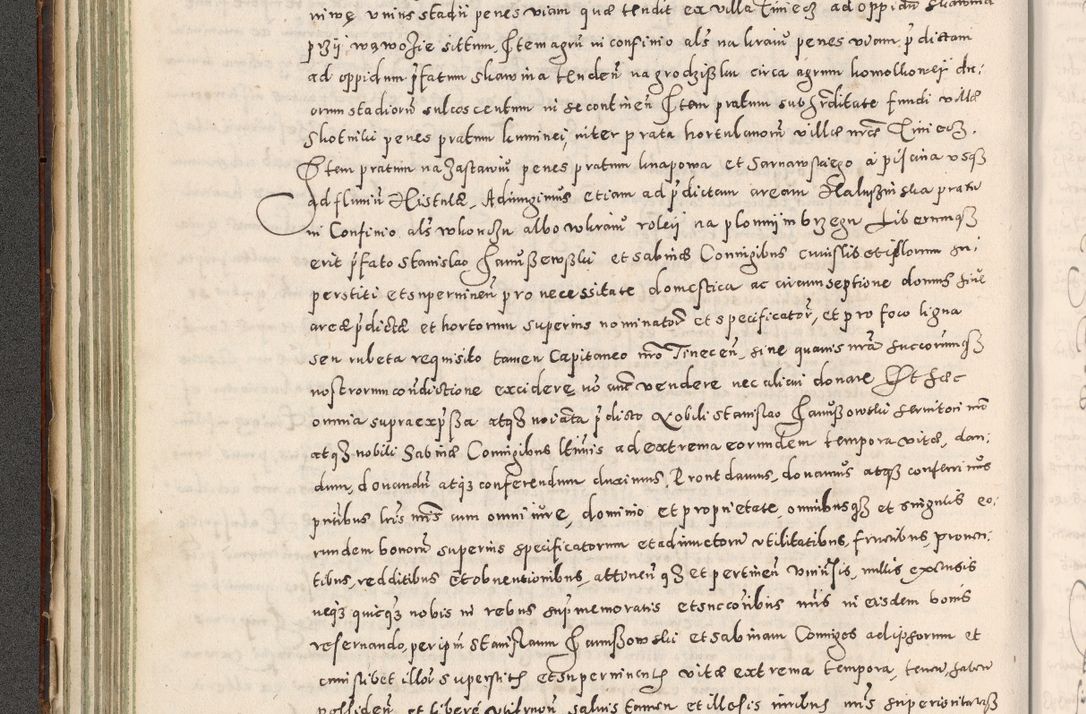 niwę unius stadii penes viam quæ tendit ex villa Tiniecz ad oppidū Skawina
przÿ wąwozie sittum, Item agrū in confinio als na kraiu penes viam p̄dictam
ad oppidum p̄fatum Skawina tendeñ na grodziszku circa agrum komolkowej du-
orum stadiorū sulcos centum in se contineñ Item pratum sub hr̄ditate fundi villæ
Skotniki penes pratum kuminej, inter prata hortulanorū villæ nræ Tiniecz.
Item pratum na Zastawiu penes pratum knapowa et Sarnawskiego a piscina usq₃
ad fluviū Vistulæ. Adiungimus etiam ad p̄dictam aream Haluszinska pratū
in Confinio als wkonczu albo wkraiu roleÿ na plonnÿm brzegu Liberumq₃
erit p̄fato Stanislao Janußewßki et Sabinæ Coniugibus cuiuslibet ipsorum su-
perstiti et supervineñ pro necessitate domestica ac circumseptione domus sive
areæ p̄dictæ et hortorum superius nominatorū et specificatorū, et pro foco ligna
seu rubeta requisito tamen Capitaneo nr̄o Tineceñ, sine quavis nr̄a succorumq₃
nostrorum condictione excidere, nō aut̄ vendere nec alicui donare Et hæc
omnia supra exp̄ssa atq₃ noiata p̄dicto Nobili Stanislao Janußowski servitori nr̄o
atq₃ nobili Sabinæ Coniugibus ltīmis ad extrema eorundem tempora vitæ, dan-
dum, donandū atq₃ conferendum duximus, Prout damus, donamus atq₃ conferimus
pn̄tibus lr̄is nr̄is cum omni iure, dominio et proprietate, omnibusq₃ et singulis eo-
rundem bonorū superius specificatorum et adiunctorū utilitatibus, fructibus, proven-
tibus, redditibus et obventionibus, attineñ q₃ et pertineñ univ̄sis, nullis exclusis
neq₃ quicq₃ nobis in rebus sup̄memoratis et succ̄oribus nr̄is in eisdem bonis
reservando, per ip̄m Stanislaum Janußowski et Sabinam Coniuges ad ipsorum et
cuiuslibet illorū superstitis et supervinentis vitæ extrema tempora, teneñ, habeñ
possideñ et liberè utifrueñ salvis tamen et illæsis iuribus nr̄is superioritatisq₃